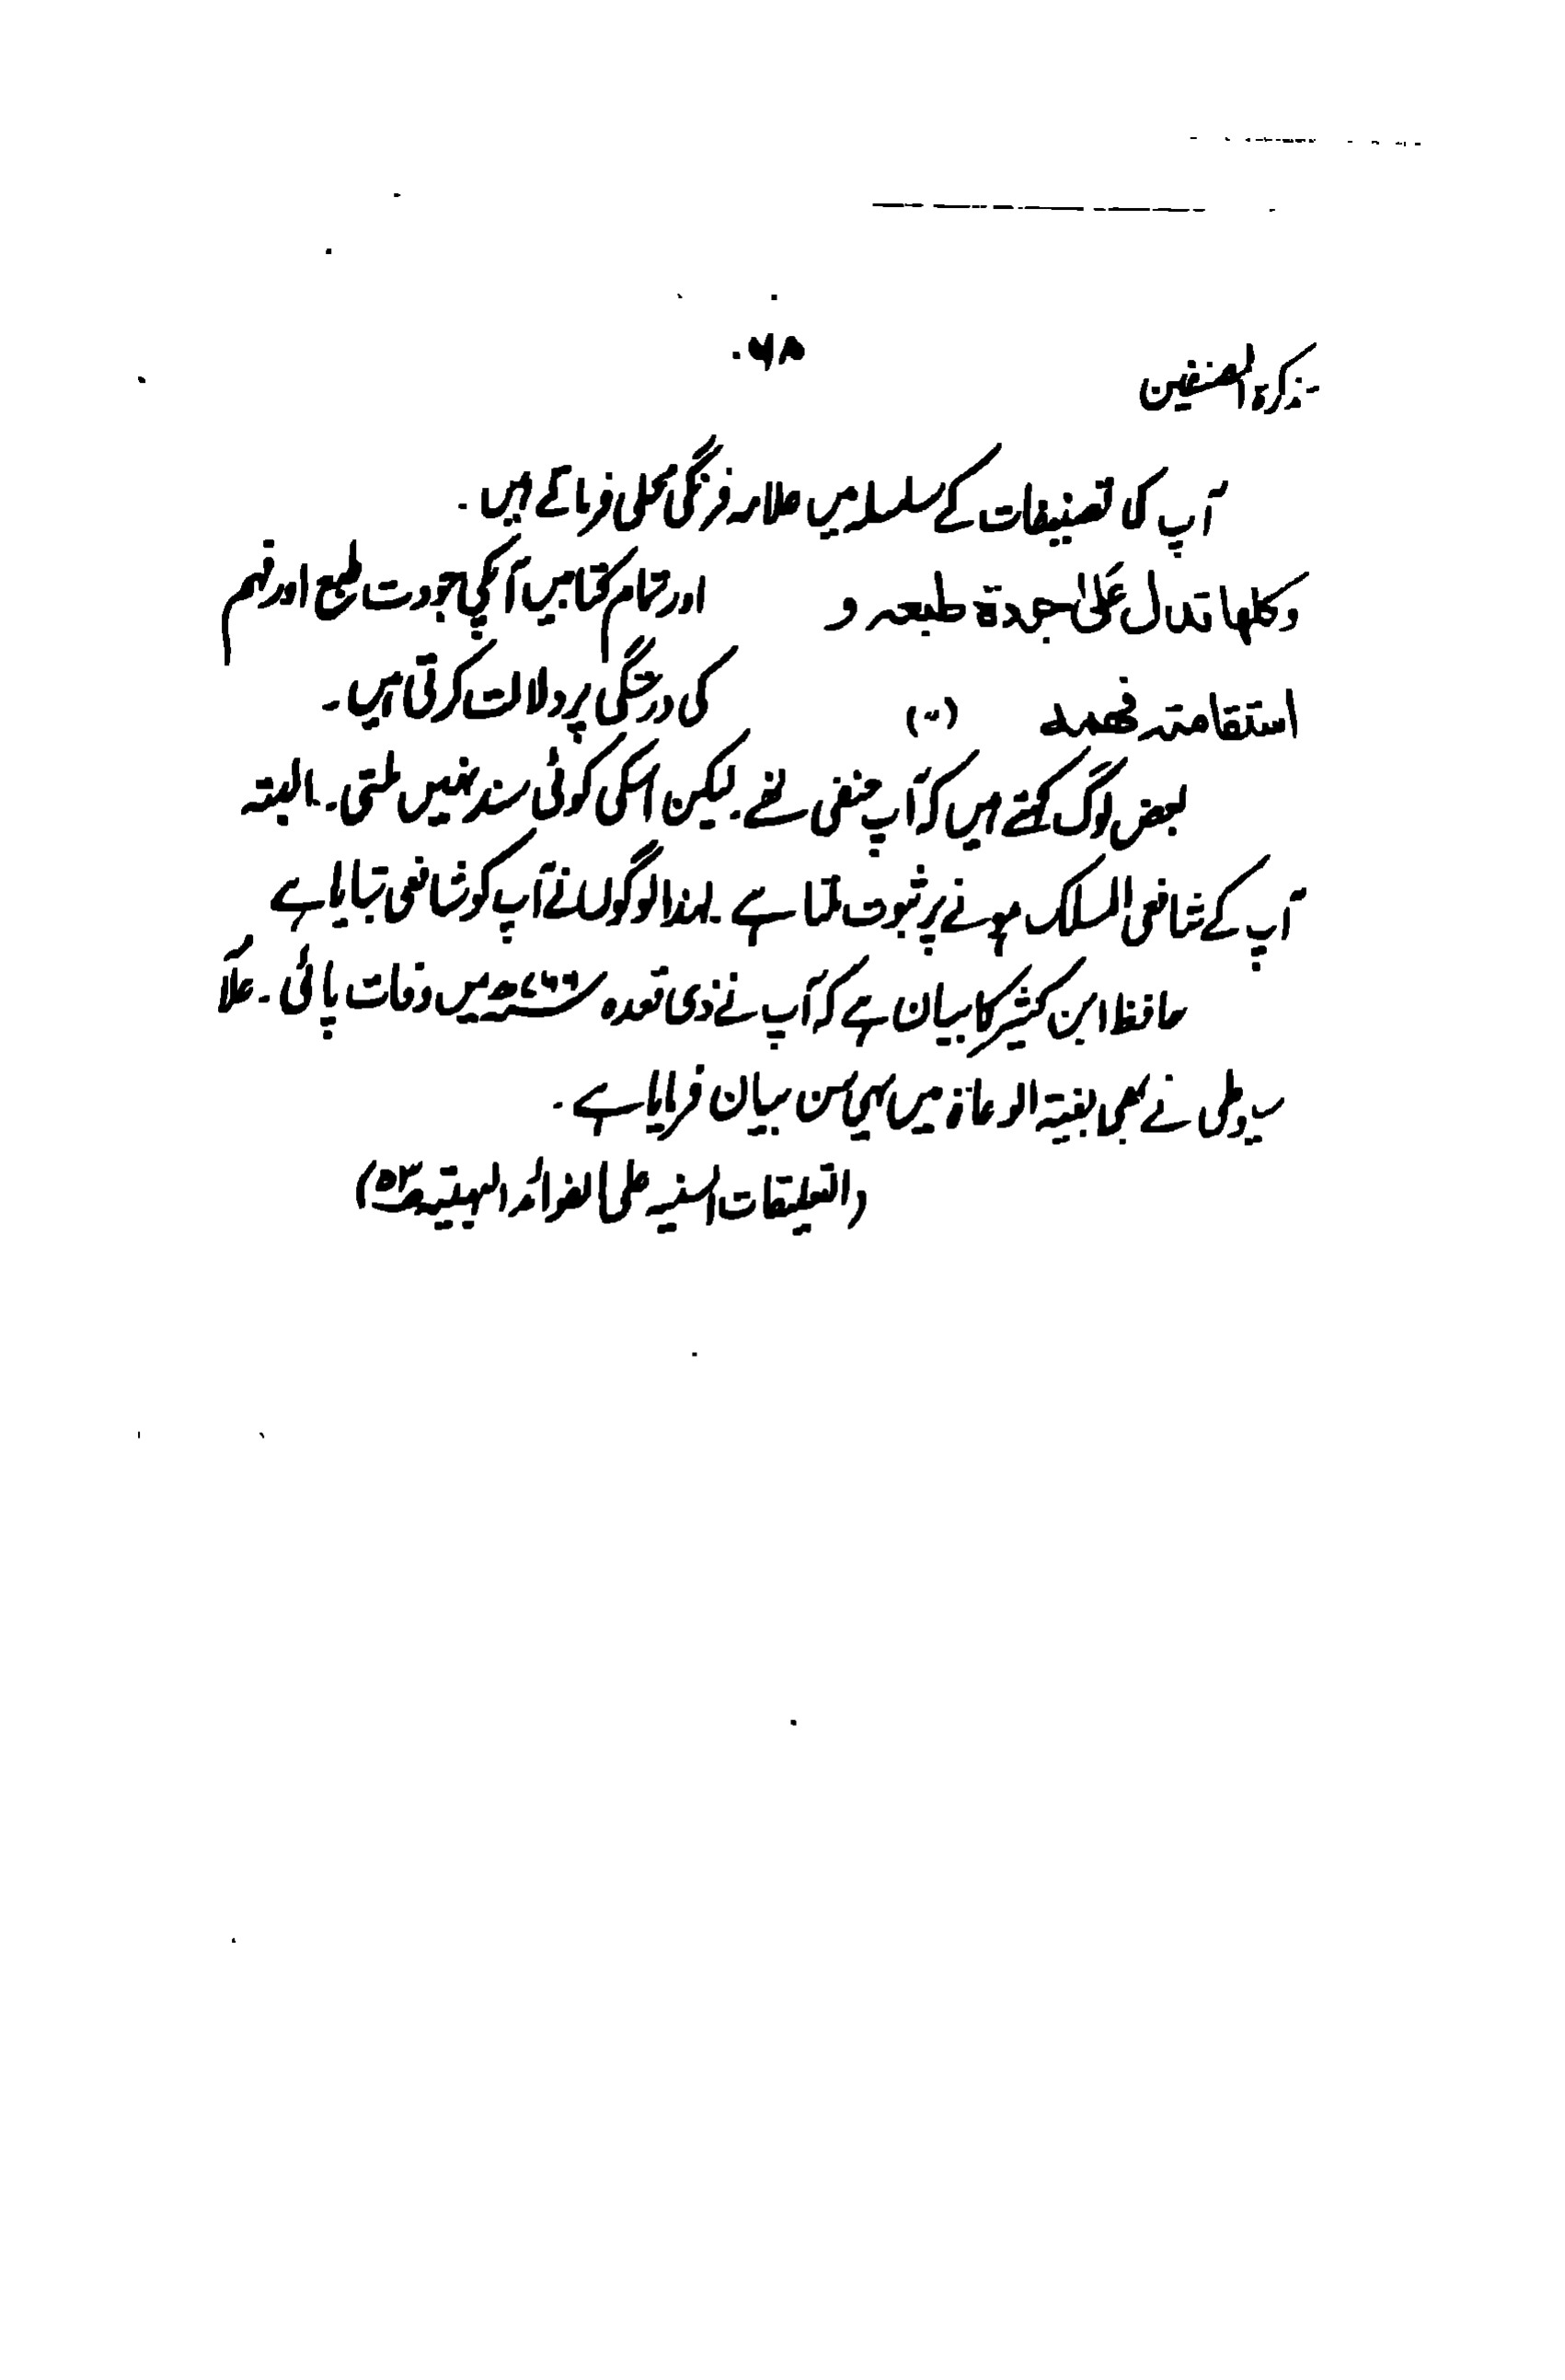 تذکرۃ المصنفین
۶۸
آپ کی تصنیفات کے سلسلہ میں علامہ فرنگی محلی فرماتے ہیں۔
وکلها تدل علیٰ جودة طبعه و
استقامتہ فهمه (")
اور تمام کتابیں آپکی جودت طبع اور فہم
کی درستگی پر دلالت کرتی ہیں۔
بعض لوگ کہتے ہیں کہ آپ حنفی تھے۔ لیکن اسکی کوئی سند نہیں ملتی۔ البتہ
آپ کے شافعی المسلک ہونے پر ثبوت ملتا ہے۔ لہذا لوگوں نے آپ کو شافعی بتایا ہے
حافظ ابن کثیر کا بیان ہے کہ آپ نے ذی قعدہ ۷۶۶ھ میں وفات پائی۔ علاّ
سیوطی نے بھی بغیتہ الوعاة میں یہی سن بیان فرمایا ہے۔
(التعلیقات السنیہ علی الفوائد البہیتہ ص۵۳)